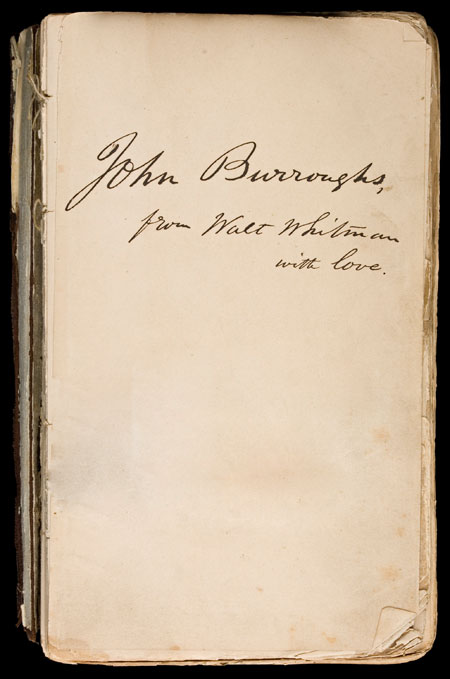 John Burroughs,
from Walt Whitman
with love.